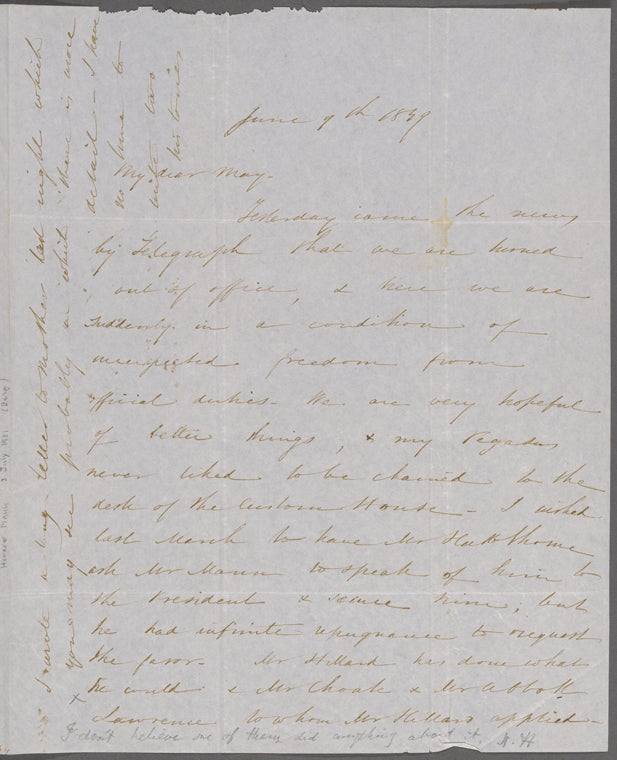 June 9th 1849
My dear Mary-
Yesterday came the news
by Telegraph that we are turned
out of office, & here we are
suddenly in a condition of
unexpected freedom from
official duties- We are very hopeful
of better things, & my Pegasus
never liked to be chained to the
desk of the Custom House- I wished
last March to have Mr Hawthorne
ask Mr Mann to speak of him to
the President & secure him; but
he had infinite repugnance to request
the favor- Mr Hillard has done what
he could & Mr Choate & Mr Abbott
Lawrence to whom Mr Hillard applied-
x
I don't believe one of them did anything about it. N. H.
I wrote a long letter to mother last night which
you may see probably in which there is more
detail- I have
no time to
write two
histories
Horace Mann 3 July 1851